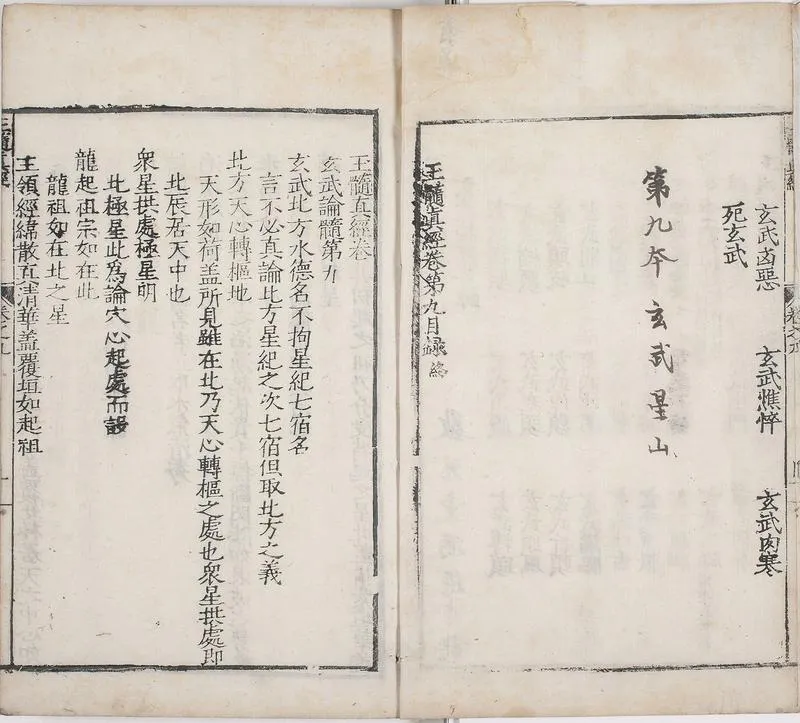 玄武凶惡 玄武憔悴 玄武肉寒
死玄武
第九本玄武星山
玉髓真經卷第九目録終
玉髓真經卷
玄武論髓第九
玄武北方水德名不拘星紀七宿名
言不必真論北方星紀之次七宿但取北方之義
北方天心轉樞地
天形如荷盖所見雖在北乃天心轉樞之處也衆星拱處即
北辰居天中也
衆星拱處極星明
北極星此為論穴心起處而設
龍起祖宗如在此
龍祖如在北之星
主領經緯散五清華盖覆垣如起祖
玉髓真經
卷之九